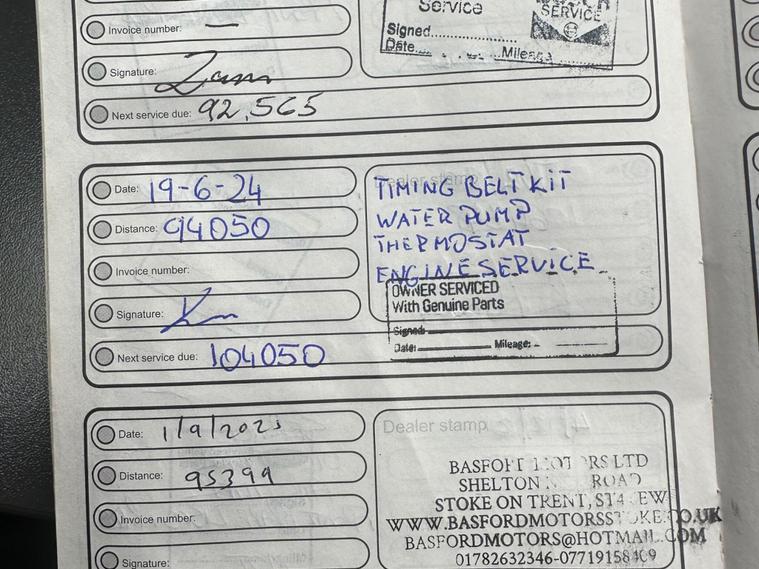 Service
SERVICE
Invoice number: —
Signed
Date Mileage
Signature:
Next service due: 92,565
Date: 19-6-24
Distance: 94050
Invoice number:
Signature:
Next service due: 104050
Dealer stamp
TIMING BELT KIT
WATER PUMP
THERMOSTAT
ENGINE SERVICE
OWNER SERVICED
With Genuine Parts
Signed:
Date: Mileage:
Date: 1/9/2025
Distance: 95399
Invoice number:
Signature:
Dealer stamp
BASFORD MOTORS LTD
SHELTON ROAD
STOKE ON TRENT, ST4 EW
WWW.BASFORDMOTORSSTOKE.CO.UK
BASFORDMOTORS@HOTMAIL.COM
01782632346-07719158409